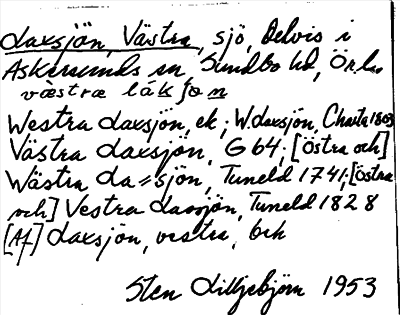 Laxsjön, Västra, sjö, Delvis i
Askersunds sn, Sundbo hd, Ör. l.
væstræ lakʃon
Westra Laxsjön, ek; W. Laxsjön, Charta 1803
Västra Laxsjön, G 64; [Östra och]
Wästra La=sjön, Tuneld 1741; [Östra
och] Vestra Laxsjön, Tuneld 1828
[Af] Laxsjön, vestra, Grh
Sten Lilljebjörn 1953